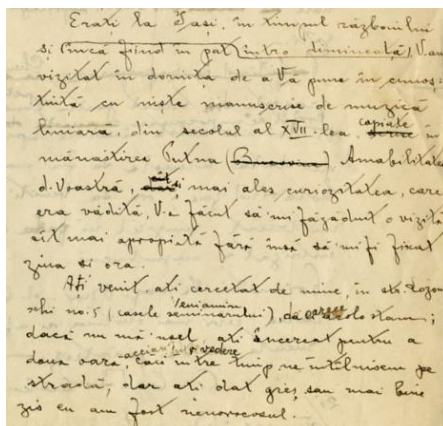 Erați la Iași, în timpul războiului
și (încă fiind în pat) într'o dimineață, V-am
vizitat în dorința de a Vă pune în cunoș-
tință cu niște manuscrise de muzică
liniară, din secolul al XVII-lea, copiate în
mănăstirea Putna (Bucovina) Amabilitatea
d-Voastră, cât și mai ales, curiozitatea, care
era vădită, V-a făcut să-mi făgăduit o vizită
cît mai apropiată fără însă să-mi fi fixat
ziua și ora.
Ați venit, ați cercetat de mine, în str.
schi no. 5 (casele seminarului Veniamin), căci acolo stam;
dacă nu mă înșel, ați încercat pentru a
doua oară, aceiași revedere, căci între timp ne întîlnisem pe
stradă, dar ați dat greș, sau mai bine
zis eu am fost nenorocosul.